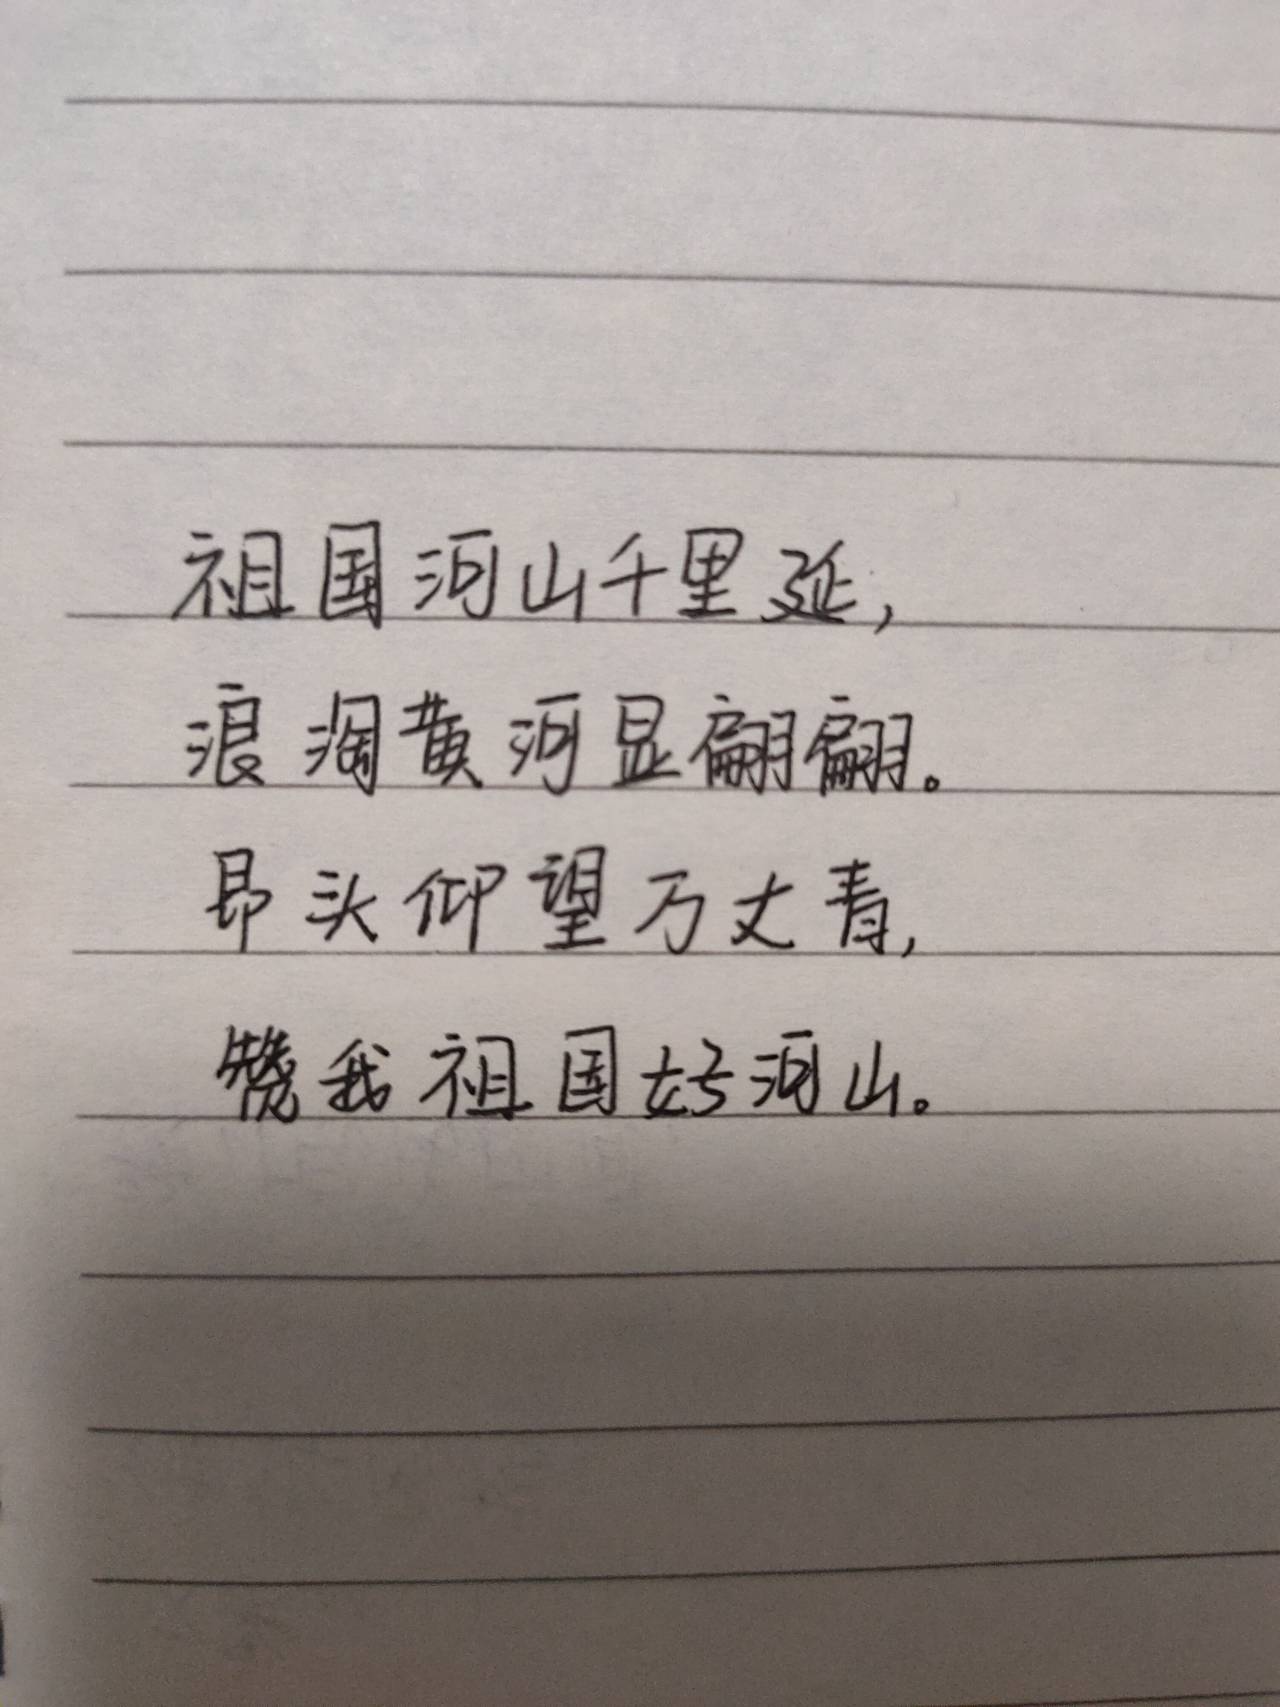 祖国河山千里延，
浪淘黄河显翩翩。
昂头仰望万丈青，
赞我祖国好河山。